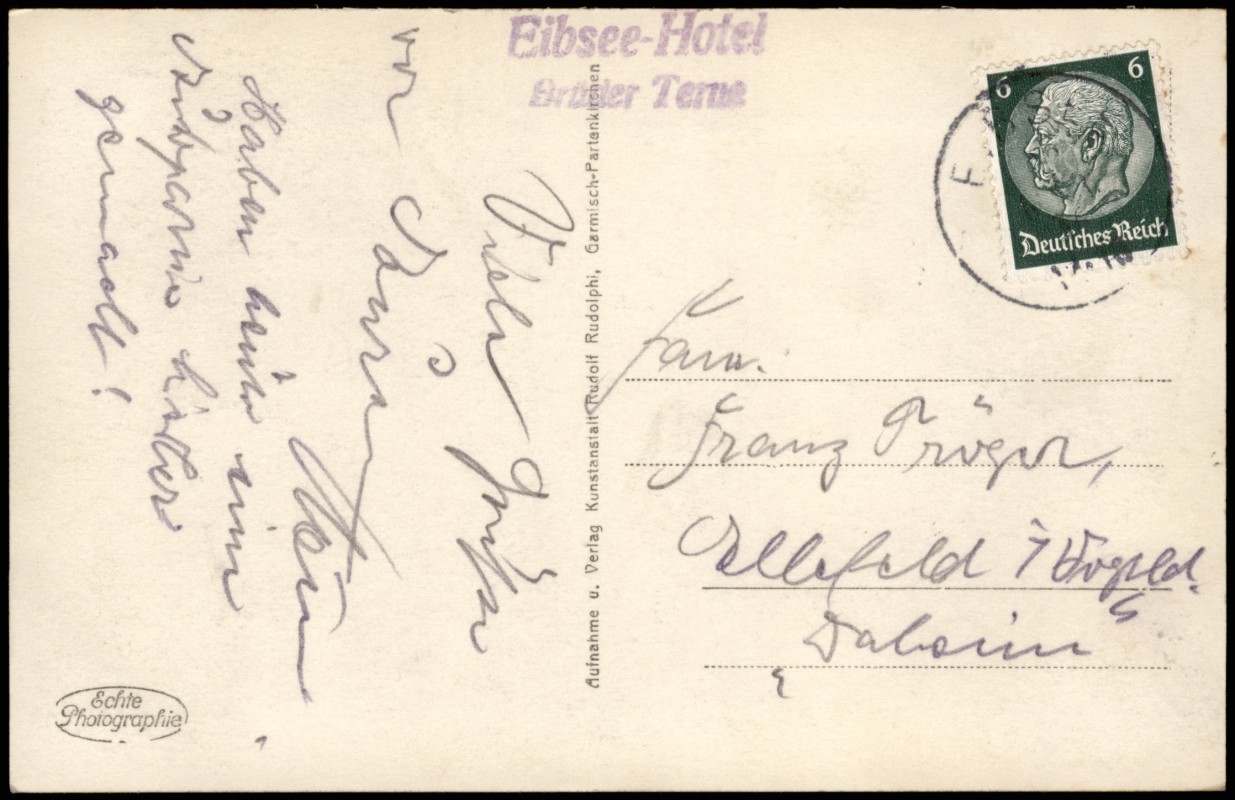 Eibsee-Hotel
Brüder Terne
6 6
Deutsches Reich
Viele Grüße
vor
Haben heute eine
hinter
gemacht!
Aufnahme u. Verlag Kunstanstalt Rudolf Rudolphi, Garmisch-Partenkirchen
Fam.
Franz Tröger,
Ellefeld i/Vogtld.
Daheim
Echte
Photographie